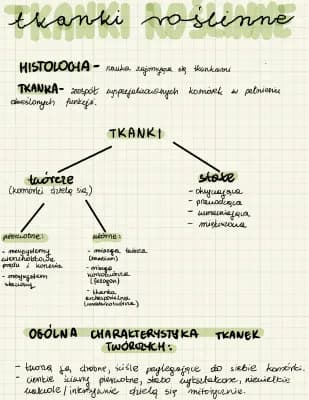 tkanki roślinne
HISTOLOGIA - nauka zajmująca się tkankami
TKANKA - zespół wyspecjalizowanych komórek w pełnieniu
określonych funkcji.
TKANKI
twórcze
(komórki dzielą się)
stałe
- okrywająca
- przewodząca
- wzmacniająca
- miękiszowa
pierwotne:
- merystemy
wierzchołkowe
pędu i korzenia
- merystem
wtórne:
- miazga twórcza
(kambium)
- miazga
korkotwórcza
(fellogen)
- tkanka
OGÓLNA CHARAKTERYSTYKA TKANEK
TWÓRCZYCH:
- tworzą ją drobne, ściśle przylegające do siebie komórki.
- cienkie ściany pierwotne, słabo wykształcone, niewielkie
wakuole / intensywnie dzielą się mitotycznie.